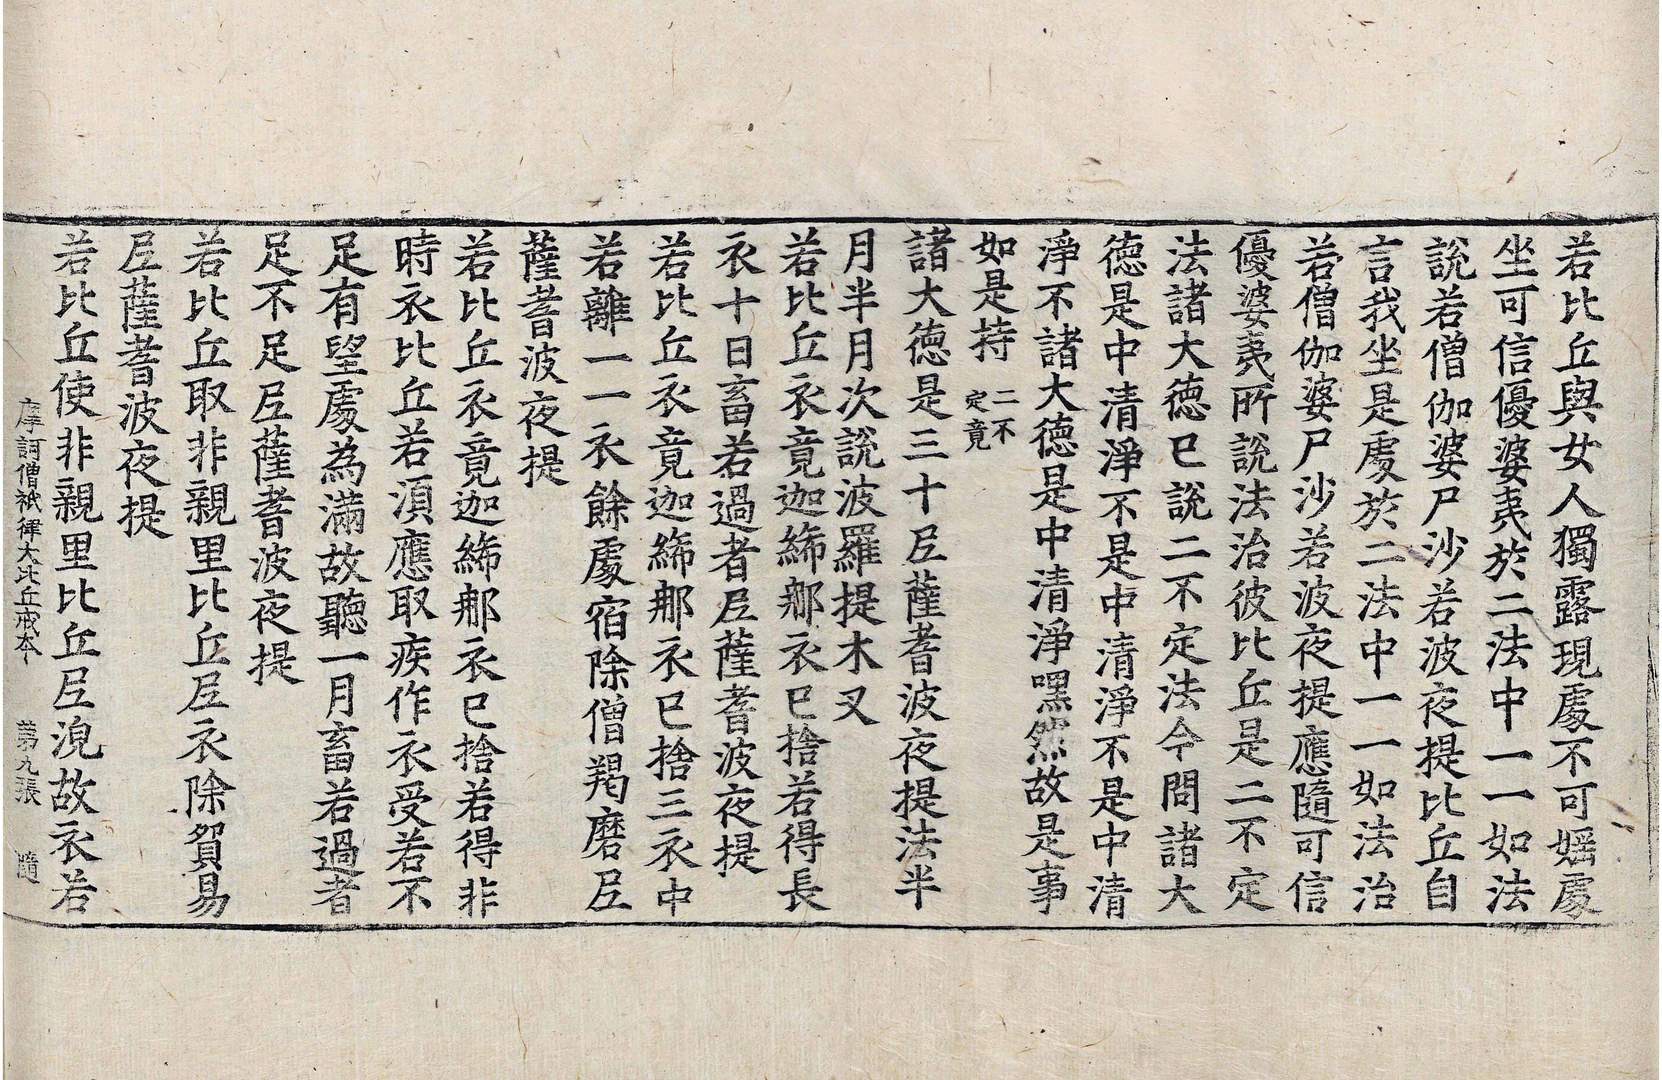 若比丘與女人獨露現處不可婬處
坐可信優婆夷於二法中一一如法
說若僧伽婆尸沙若波夜提比丘自
言我坐是處於二法中一一如法治
若僧伽婆尸沙若波夜提應隨可信
優婆夷所說法治彼比丘是二不定
法諸大德已說二不定法今問諸大
德是中清淨不是中清淨不是中清
淨不諸大德是中清淨嘿然故是事
如是持 二不
定竟
諸大德是三十尼薩耆波夜提法半
月半月次說波羅提木叉
若比丘衣竟迦絺那衣已捨若得長
衣十日畜若過者尼薩耆波夜提
若比丘衣竟迦絺那衣已捨三衣中
若離一一衣餘處宿除僧羯磨尼
薩耆波夜提
若比丘衣竟迦絺那衣已捨若得非
時衣比丘若須應取疾作衣受若不
足有望處為滿故聽一月畜若過者
足不足尼薩耆波夜提
若比丘取非親里比丘尼衣除貿易
尼薩耆波夜提
摩訶僧祇律大比丘戒本 第九張 隨
若比丘使非親里比丘尼浣故衣若